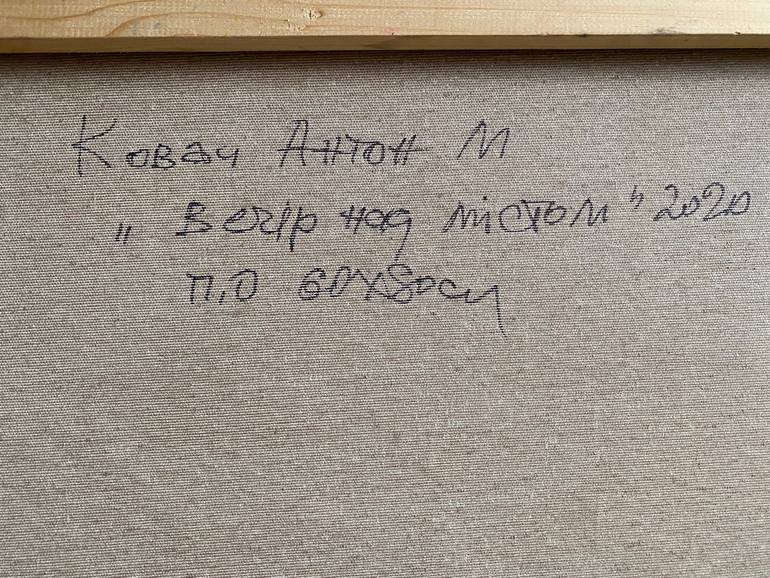 Ковач Антон М
„ Вечір над містом" 2020
П.О 60х80см